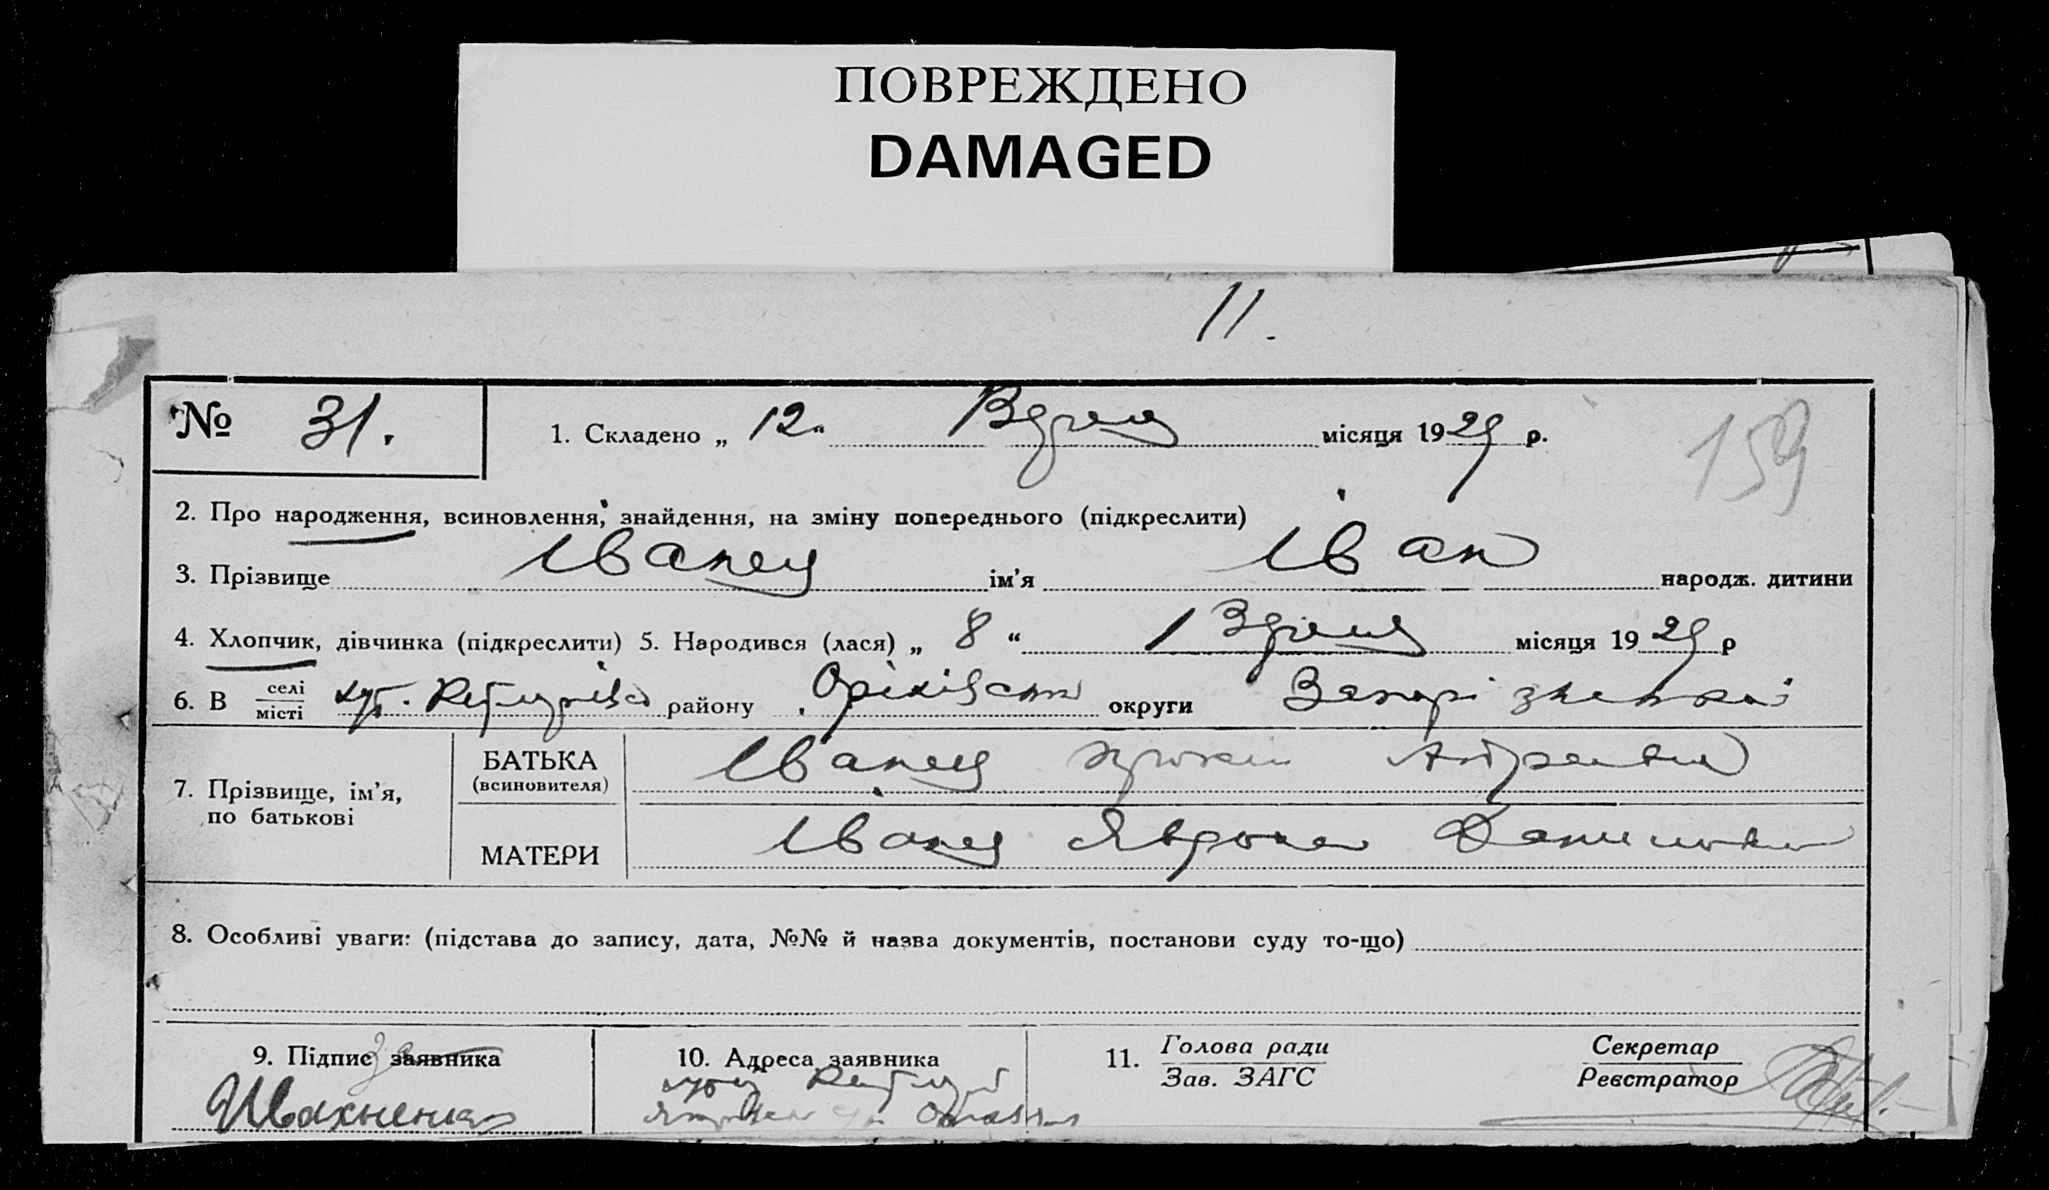 ПОВРЕЖДЕНО
DAMAGED
11.
№ 31. 1. Складено „ 12 “ місяця 1929 р. 159
2. Про народження, всиновлення, знайдення, на зміну попереднього (підкреслити)
3. Прізвище Іванец ім’я Іван народж. дитини
4. Хлопчик, дівчинка (підкреслити) 5. Народився (лася) „ 8 “ місяця 1929 р
6. В селі місті хут. району Оріхівськ округи Запорізької
7. Прізвище, ім’я, по батькові
БАТЬКА (всиновителя) Іванец
МАТЕРИ Іванец Явдоха Даниловна
8. Особливі уваги: (підстава до запису, дата, №№ й назва документів, постанови суду то-що)
9. Підпис заявника 10. Адреса заявника 11. Голова ради Зав. ЗАГС Секретар Реєстратор
Ивахненко